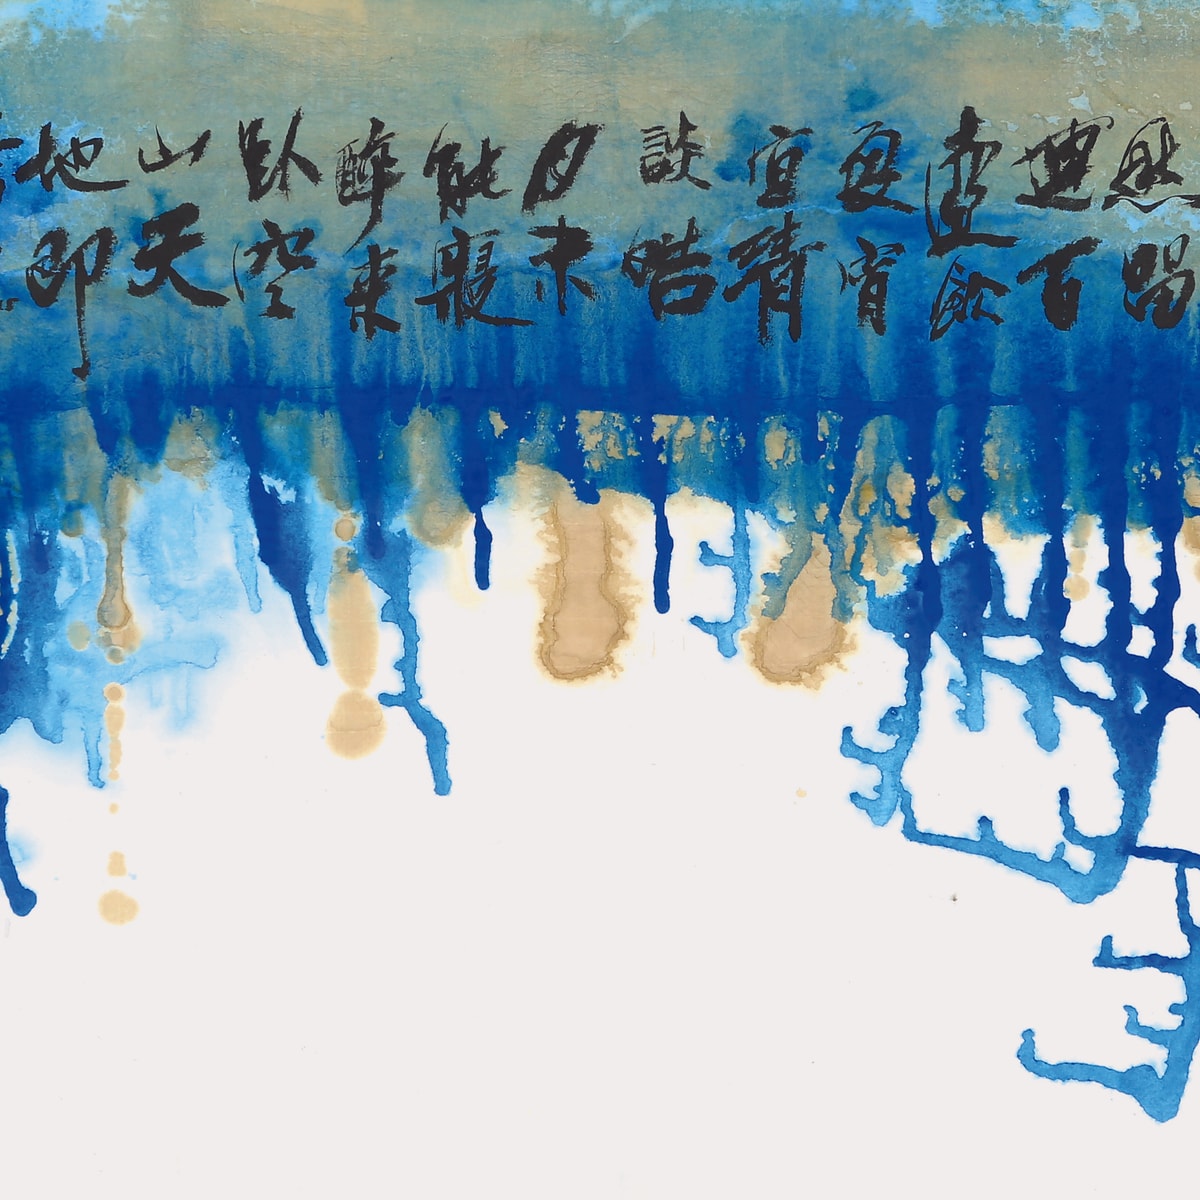 愁留
連百
壺飲
良宵
宜清
談皓
月未
能寢
醉來
臥空
山天
地即